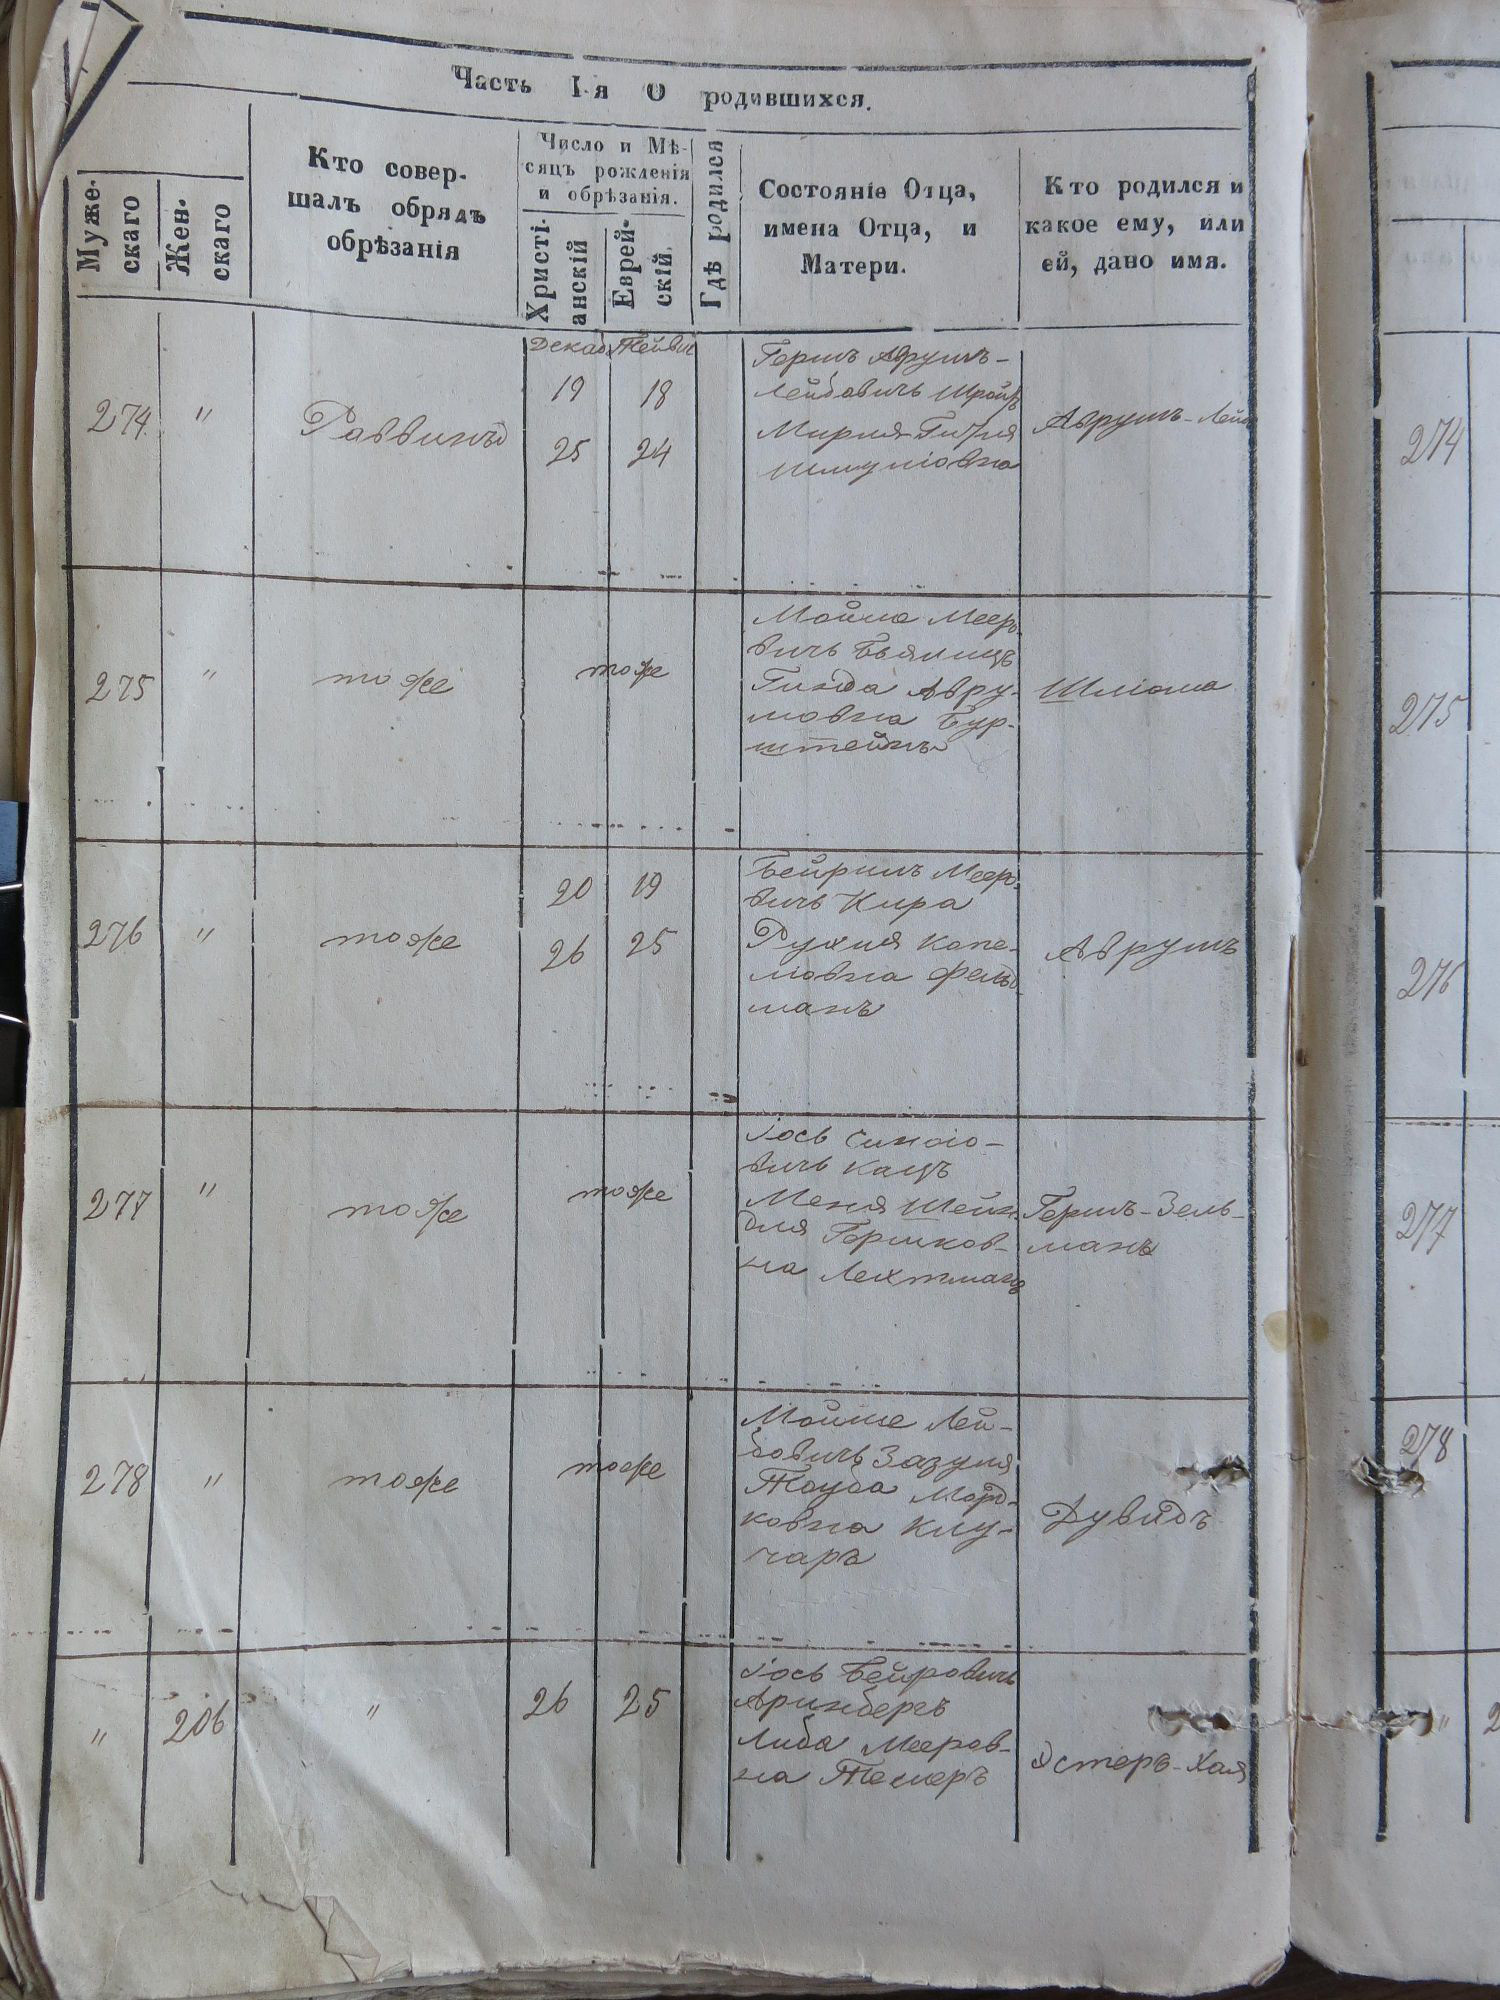 Часть I-я О родившихся.
Муже-
скаго
Жен-
скаго
Кто совер-
шалъ обрядъ
обрѣзанія
Число и Мѣ-
сяцъ рожденія
и обрѣзанія.
Христі-
анскій
Еврей-
скій
Гдѣ родился
Состояніе Отца,
имена Отца, и
Матери.
Кто родился и
какое ему, или
ей, дано имя.
274
"
Раввинъ
Декаб
19
25
18
24
Гершъ Аврумъ-
Лейбовичъ
Мирля
Шмуліовна
Аврумъ-Лейб
274
275
"
тоже
тоже
Мойша Меер-
вичъ
Гинда Авру-
мовна Бур-
штейнъ
Шліома
275
276
"
тоже
20
26
19
25
Бейришъ Меер-
вичъ Кира
Рухля Копе-
ловна Фельд-
манъ
Аврумъ
276
277
"
тоже
тоже
Іось
вичъ Кацъ
Меня Шейн-
для Гершков-
на Лехтманъ
Гершъ-Зель-
манъ
277
278
"
тоже
тоже
Мойше Лей-
бовичъ Зазуля
Тауба Морд-
ковна Клу-
чаръ
Дувидъ
278
"
206
"
26
25
Іось Бейровичъ
Аринбергъ
Либа Мееров-
на Темеръ
Эстеръ-Хая
"
2